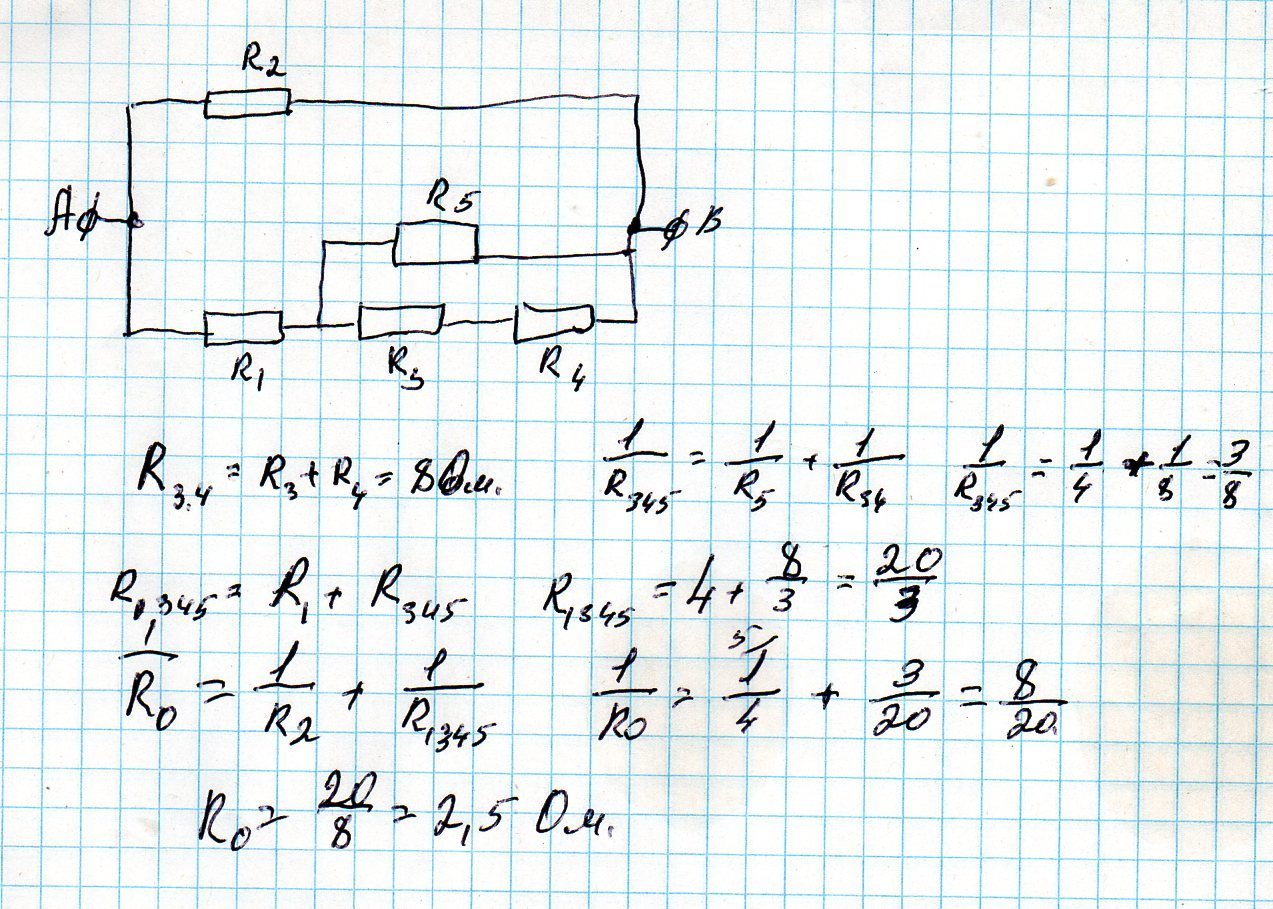 R2
R5
Aϕ
ϕB
R1
R3
R4
R3.4 = R3 + R4 = 8 Ом. 1/R345 = 1/R5 + 1/R34 1/R345 = 1/4 + 1/8 = 3/8
R1,345 = R1 + R345 R1345 = 4 + 8/3 = 20/3
1/R0 = 1/R2 + 1/R1345 1/R0 = 5/ 1/4 + 3/20 = 8/20.
R0 = 20/8 = 2,5 Ом.